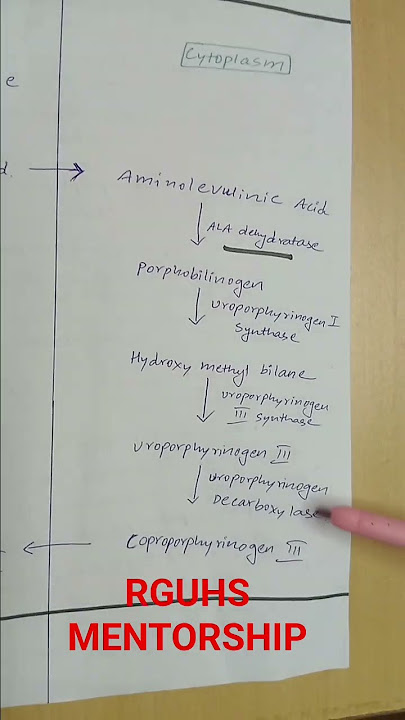 Cytoplasm
e
d.
Aminolevulinic Acid
ALA dehydratase
Porphobilinogen
Uroporphyrinogen I
Synthase
Hydroxy methyl bilane
Uroporphyrinogen
III Synthase
Uroporphyrinogen III
Uroporphyrinogen
Decarboxylase
Coproporphyrinogen III
RGUHS
MENTORSHIP